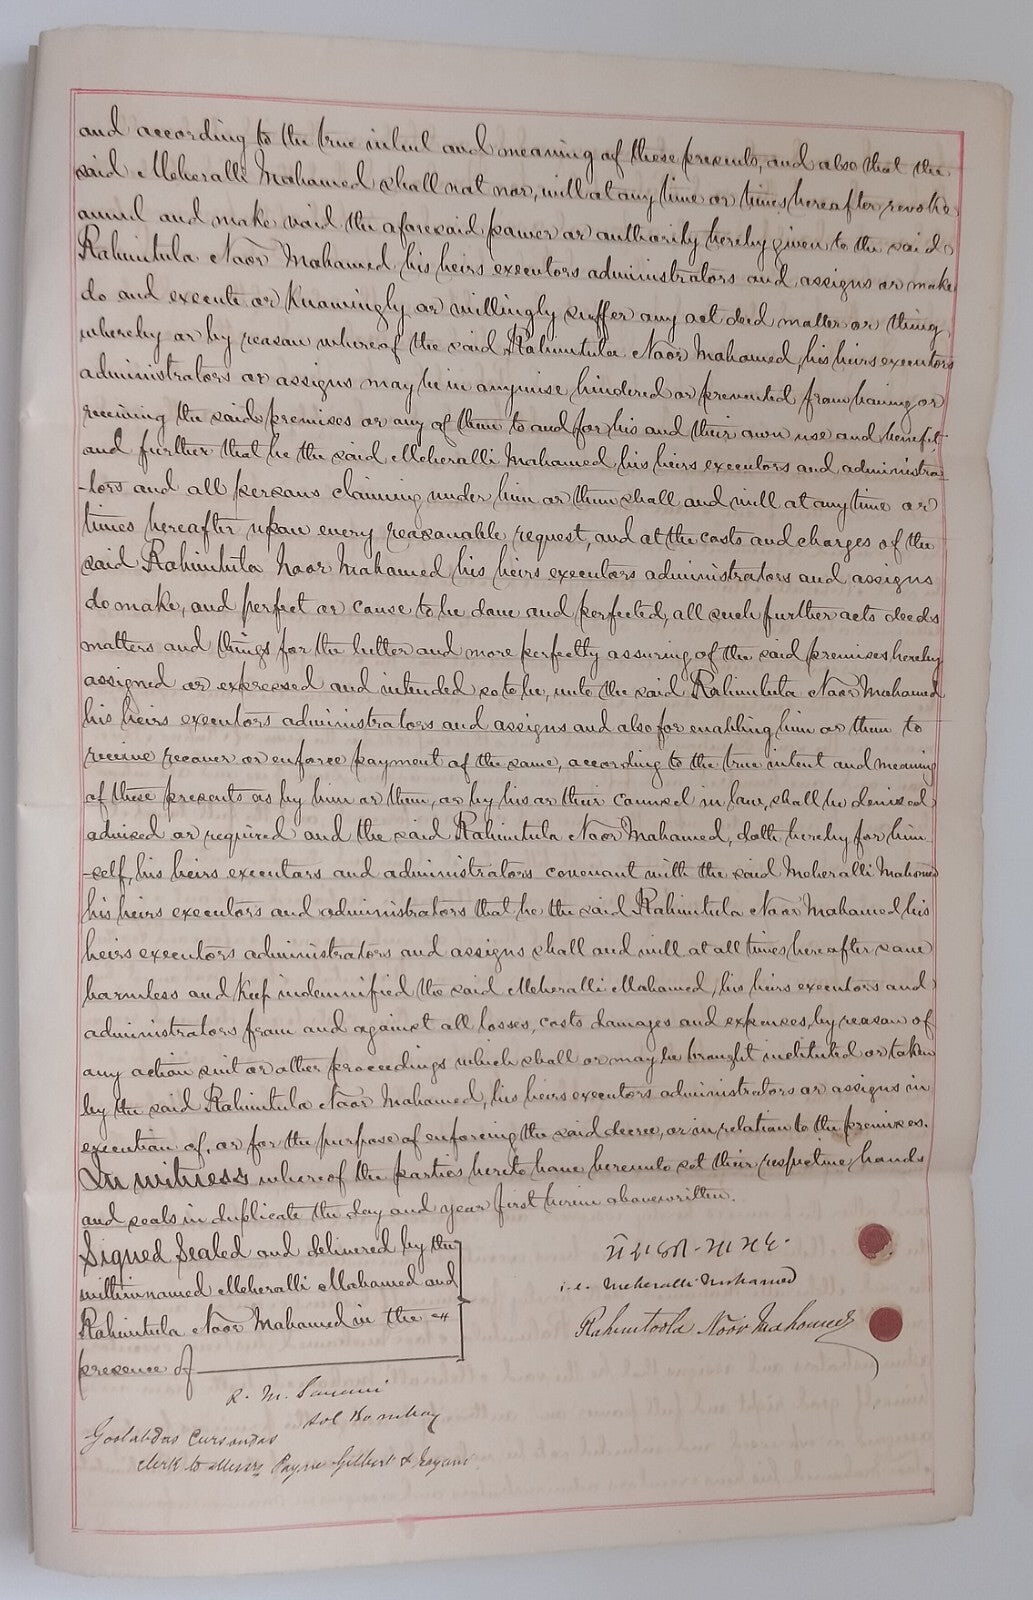 and according to the true intent and meaning of these presents, and also that the
said Meheralli Mahamed shall not nor, will at any time or times hereafter revoke
annul and make void the aforesaid power or authority hereby given to the said
Rahimtula Noor Mahamed his heirs executors administrators and assigns or make
do and execute or knowingly or willingly suffer any act deed matter or thing
whereby or by reason whereof the said Rahimtula Noor Mahamed, his heirs executors
administrators or assigns may be in anywise hindered or prevented from having or
receiving the said premises or any of them to and for his and their own use and benefit
and further that he the said Meheralli Mahamed his heirs executors and administra
-tors and all persons claiming under him or them shall and will at any time or
times hereafter upon every reasonable request, and at the costs and charges of the
said Rahimtula Noor Mahamed his heirs executors administrators and assigns
do make, and perfect or cause to be done and perfected, all such further acts deeds
matters and things for the better and more perfectly assuring of the said premises hereby
assigned or expressed and intended so to be, unto the said Rahimtula Noor Mahamed
his heirs executors administrators and assigns and also for enabling him or them to
receive recover or enforce payment of the same, according to the true intent and meaning
of these presents as by him or them, or by his or their counsel in law, shall be devised
advised or required and the said Rahimtula Noor Mahamed, doth hereby for him
-self, his heirs executors and administrators covenant with the said Meheralli Mahomed
his heirs executors and administrators that he the said Rahimtula Noor Mahamed his
heirs executors administrators and assigns shall and will at all times hereafter save
harmless and keep indemnified the said Meheralli Mahamed, his heirs executors and
administrators from and against all losses, costs damages and expenses, by reason of
any action suit or other proceedings which shall or may be brought instituted or taken
by the said Rahimtula Noor Mahamed, his heirs executors administrators or assigns in
execution of, or for the purpose of enforcing the said decree, or in relation to the premises.
In witness whereof the parties hereto have hereunto set their respective hands
and seals in duplicate the day and year first herein abovewritten.
Signed Sealed and delivered by the
withinnamed Meheralli Mahamed and
Rahimtula Noor Mahamed in the
presence of
i.e. Meheralli Mohamed
Rahimtoola Noor Mahomed
R. M. Sayani
Sol Bombay
Goolabdas Cursondas
clerk to Messrs Payne Gilbert & Sayani